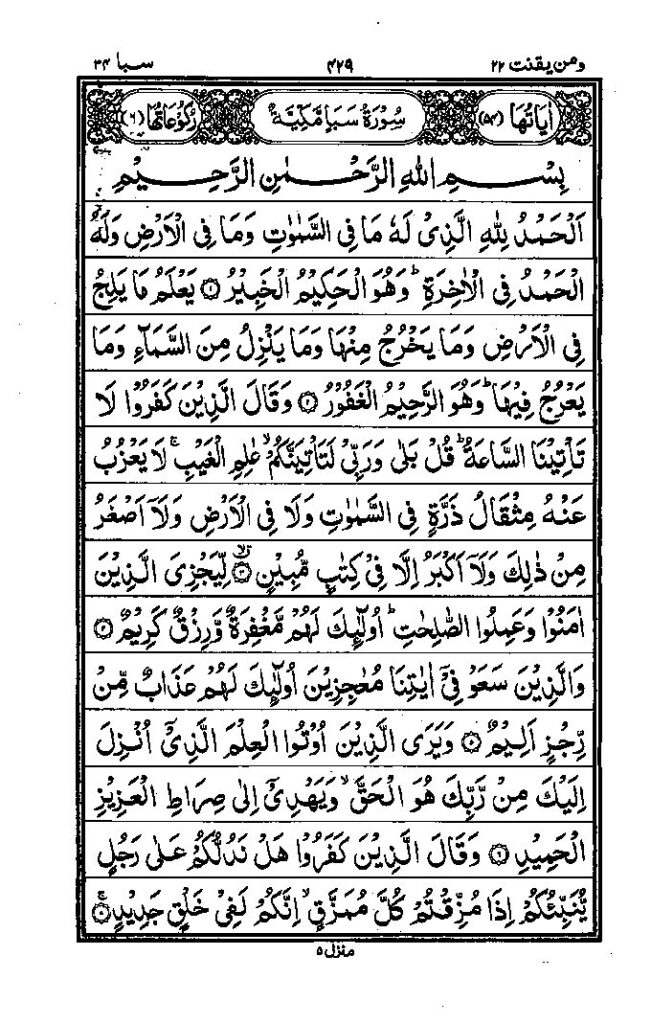 ومن یقنت ۲۲ ۴۲۹ سبا ۳۴
اٰیَاتُهَا (۵۴) سُوْرَةُ سَبَاٍ مَّكِّيَّةٌ رُكُوْعَاتُهَا (۶)
بِسْمِ اللهِ الرَّحْمٰنِ الرَّحِيْمِ
اَلْحَمْدُ لِلّٰهِ الَّذِیْ لَهٗ مَا فِی السَّمٰوٰتِ وَمَا فِی الْاَرْضِ وَلَهُ
الْحَمْدُ فِی الْاٰخِرَةِ ؕ وَهُوَ الْحَكِیْمُ الْخَبِیْرُ ۝۱ یَعْلَمُ مَا یَلِجُ
فِی الْاَرْضِ وَمَا یَخْرُجُ مِنْهَا وَمَا یَنْزِلُ مِنَ السَّمَآءِ وَمَا
یَعْرُجُ فِیْهَا ؕ وَهُوَ الرَّحِیْمُ الْغَفُوْرُ ۝۲ وَقَالَ الَّذِیْنَ كَفَرُوْا لَا
تَاْتِیْنَا السَّاعَةُ ؕ قُلْ بَلٰی وَرَبِّیْ لَتَاْتِیَنَّكُمْ ۙ عٰلِمِ الْغَیْبِ ۚ لَا یَعْزُبُ
عَنْهُ مِثْقَالُ ذَرَّةٍ فِی السَّمٰوٰتِ وَلَا فِی الْاَرْضِ وَلَاۤ اَصْغَرُ
مِنْ ذٰلِكَ وَلَاۤ اَكْبَرُ اِلَّا فِیْ كِتٰبٍ مُّبِیْنٍ ۝۳ۙ لِّیَجْزِیَ الَّذِیْنَ
اٰمَنُوْا وَعَمِلُوا الصّٰلِحٰتِ ؕ اُولٰٓىِٕكَ لَهُمْ مَّغْفِرَةٌ وَّرِزْقٌ كَرِیْمٌ ۝۴
وَالَّذِیْنَ سَعَوْ فِیْۤ اٰیٰتِنَا مُعٰجِزِیْنَ اُولٰٓىِٕكَ لَهُمْ عَذَابٌ مِّنْ
رِّجْزٍ اَلِیْمٌ ۝۵ وَیَرَی الَّذِیْنَ اُوْتُوا الْعِلْمَ الَّذِیْۤ اُنْزِلَ
اِلَیْكَ مِنْ رَّبِّكَ هُوَ الْحَقَّ ۙ وَیَهْدِیْۤ اِلٰی صِرَاطِ الْعَزِیْزِ
الْحَمِیْدِ ۝۶ وَقَالَ الَّذِیْنَ كَفَرُوْا هَلْ نَدُلُّكُمْ عَلٰی رَجُلٍ
یُّنَبِّئُكُمْ اِذَا مُزِّقْتُمْ كُلَّ مُمَزَّقٍ ۙ اِنَّكُمْ لَفِیْ خَلْقٍ جَدِیْدٍ ۝۷ۚ
منزل ۵